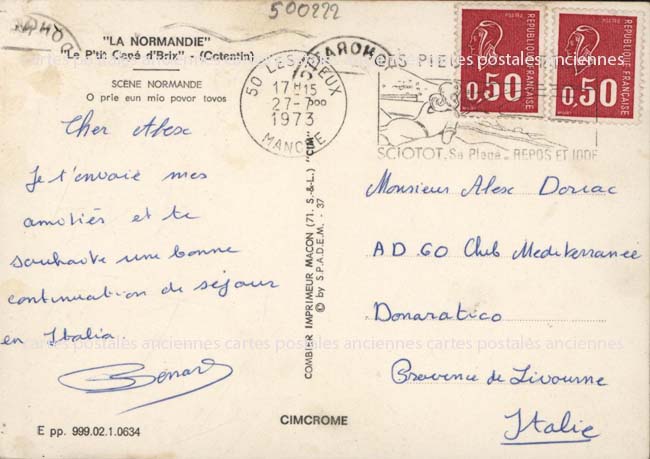 500222
"LA NORMANDIE"
"Le P'tit Capé d'Brix" - (Cotentin)
SCENE NORMANDE
O prie eun mio povor tovos
50 LES PIEUX
17H15
27-7
1973
MANCHE
LES PIEUX
SCIOTOT. Sa Plage - REPOS ET IODE
REPUBLIQUE FRANÇAISE
0,50
REPUBLIQUE FRANÇAISE
0,50
Cher Alex
Je t'envoie mes
amitiés et te
souhaite une bonne
continuation de séjour
en Italia.
Benard
E pp. 999.02.1.0634
COMBIER IMPRIMEUR MACON (71. S.-&-L.) "CIM"
© by S.P.A.D.E.M. - 37
CIMCROME
Monsieur Alex Doriac
AD 60 Club Mediterranée
Donaratico
Provence de Livourne
Italie
cartes postales anciennes cartes postales anciennes cartes postales anciennes
cartes postales anciennes cartes postales anciennes cartes postales anciennes